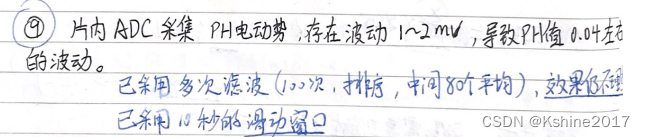 ⑨ 片内 ADC 采集 PH电动势,存在波动 1~2mV,导致PH值 0.04左右
的波动。
已采用多次滤波(100次,排序,中间80个平均),效果仍不理
已采用10秒的滑动窗口
CSDN @Kshine2017